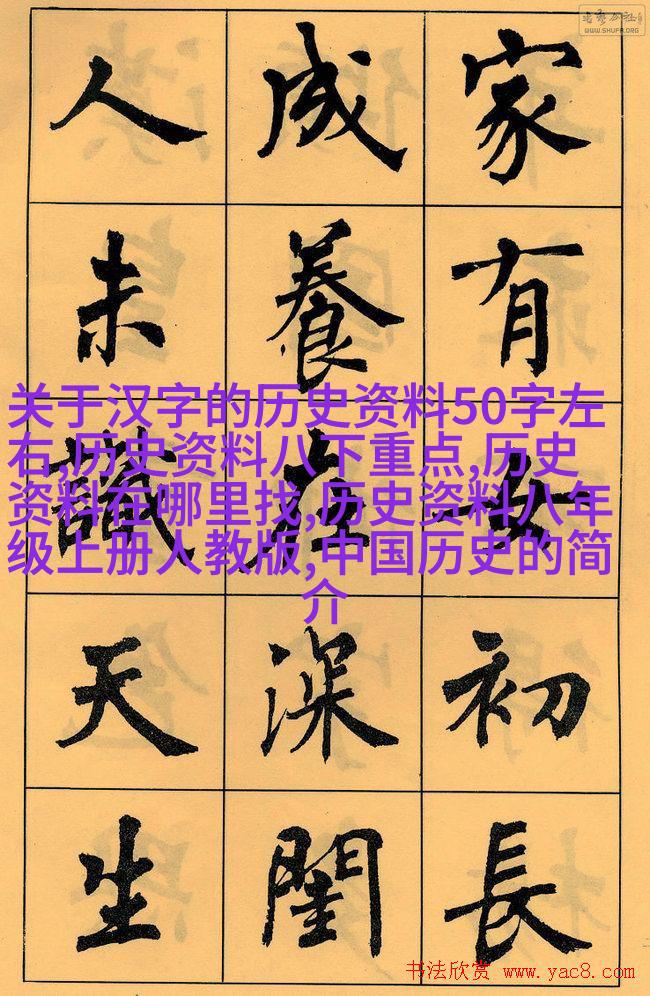 WWW.SHUFA.ORG
家有女初長
成養在深閨
人未識天生
关于汉字的历史资料50字左
右,历史资料八下重点,历史
资料在哪里找,历史资料八年
级上册人教版,中国历史的简
介
书法欣赏 www.yac8.com